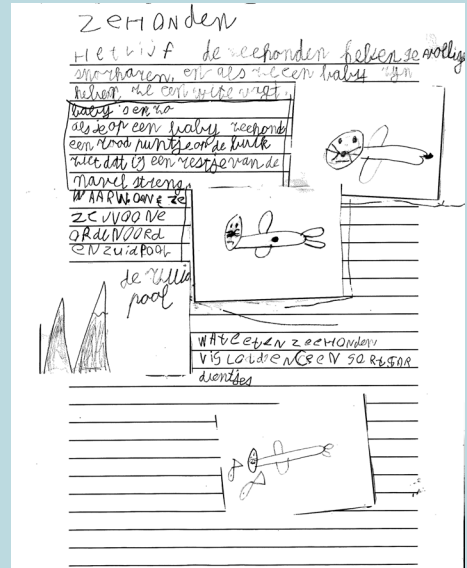 ZEHONDEN
HET LIJF de zeehonden heben ze wollige
snorharen, en als ze een baby zijn
heben ze een wite vagt.
baby's en zo
als je op een baby zeehond
een rood puntje op de buik
ziet dat is een restje van de
navel streng.
WAAR WONE ZE
ZE WOONE
OP DE NOORD
EN ZUID POOL
de zuid
pool
WAT EETEN ZEEHONDEN
VIS
dientjes